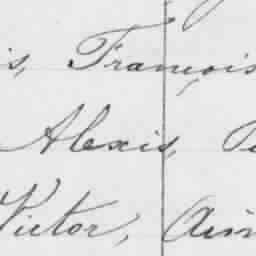 is, François
Alexis,
Victor,